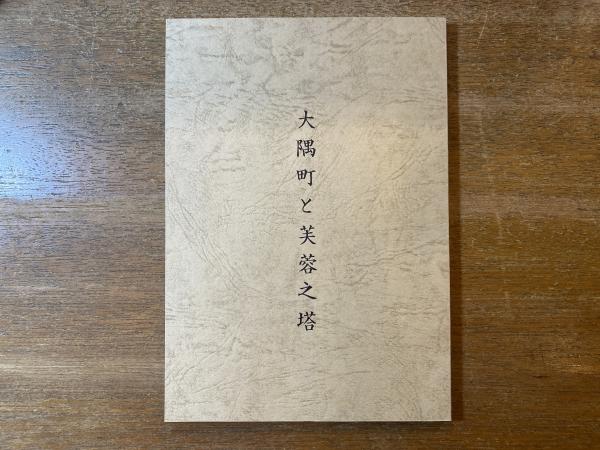 大隅町と芙蓉之塔